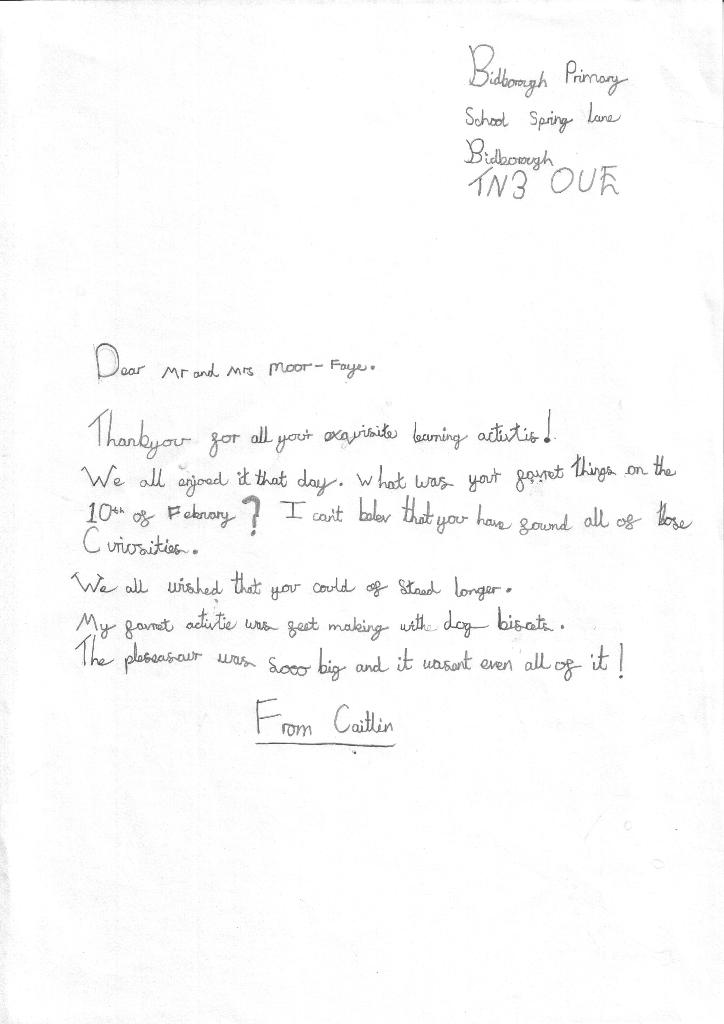 Bidborough Primary
School Spring Lane
Bidborough
TN3 0UE
Dear Mr and Mrs Moor-Faye.
Thankyou for all your exquisite learning activtis!
We all enjoed it that day. What was your favret things on the
10th of Febrary? I can't belev that you have found all of those
Curiosities.
We all wished that you could of staed longer.
My favret activtie was feet making with dog biscets.
The pleseasaur was sooo big and it wasent even all of it!
From Caitlin